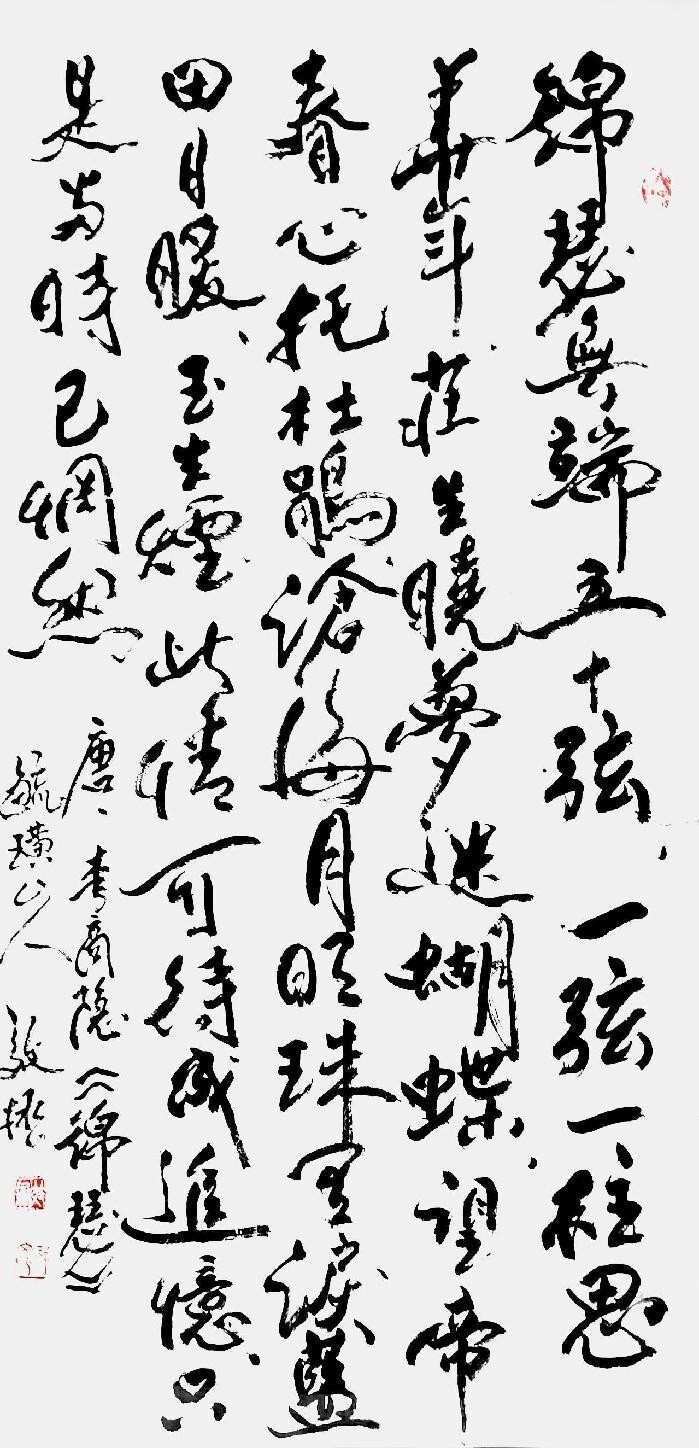 錦瑟無端五十弦、一弦一柱思
華年、莊生曉夢迷蝴蝶、望帝
春心托杜鵑滄海月明珠有淚藍
田日暖、玉生煙此情可待成追憶、只
是當時已惘然
唐、李商隱《錦瑟》
毓璜山人